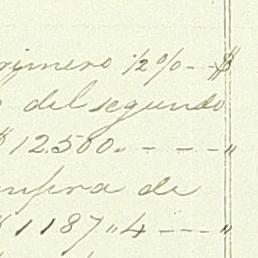 rimero ½%--$
del segundo
$12.500.---"
de
$1187"4---"